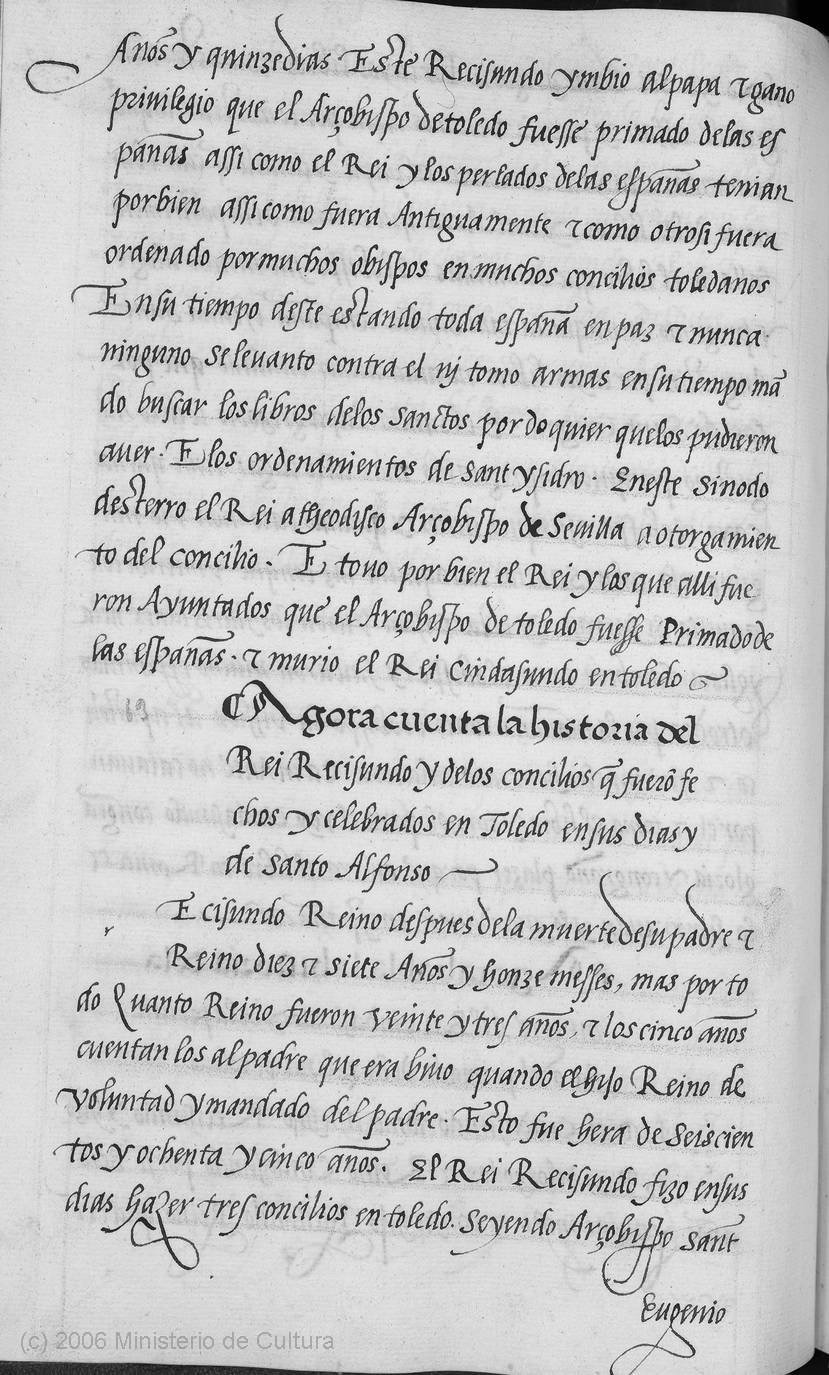 Años y quinze dias. Este Recisundo ymbio al papa τ gano
priuilegio que el Arçobispo de toledo fuesse primado delas es
pañas assi como el Rei y los perlados delas españas tenian
por bien assi como fuera Antiguamente τ como otrosi fuera
ordenado por muchos obispos en muchos concilios toledanos
En su tiempo deste estando toda españa en paz τ nunca
ninguno se leuanto contra el nj tomo armas en su tiempo mā
do buscar los libros delos sanctos por do quier que los pudieron
auer. E los ordenamientos de sant ysidro. En este sinodo
desterro el Rei a theodisco Arçobispo de Sevilla a otorgamien
to del concilio. E touo por bien el Rei y los que alli fue
ron Ayuntados que el Arçobispo de toledo fuesse Primado de
las españas. τ murio el Rei Cindasundo en toledo
69
Agora cuenta la historia del
Rei Recisundo y delos concilios q̄ fuerō fe
chos y celebrados en Toledo en sus dias y
de santo Alfonso
r
Ecisundo Reino despues dela muerte de su padre τ
Reino diez τ siete Años y honze messes, mas por to
do Quanto Reino fueron veinte y tres años, τ los cinco años
cuentan los al padre que era biuo quando el hijo Reino de
voluntad y mandado del padre. Esto fue hera de Seiscien
tos y ochenta y cinco años. El Rei Recisundo fizo en sus
dias hazer tres concilios en toledo. Seyendo Arçobispo sant
Eugenio
(c) 2006 Ministerio de Cultura